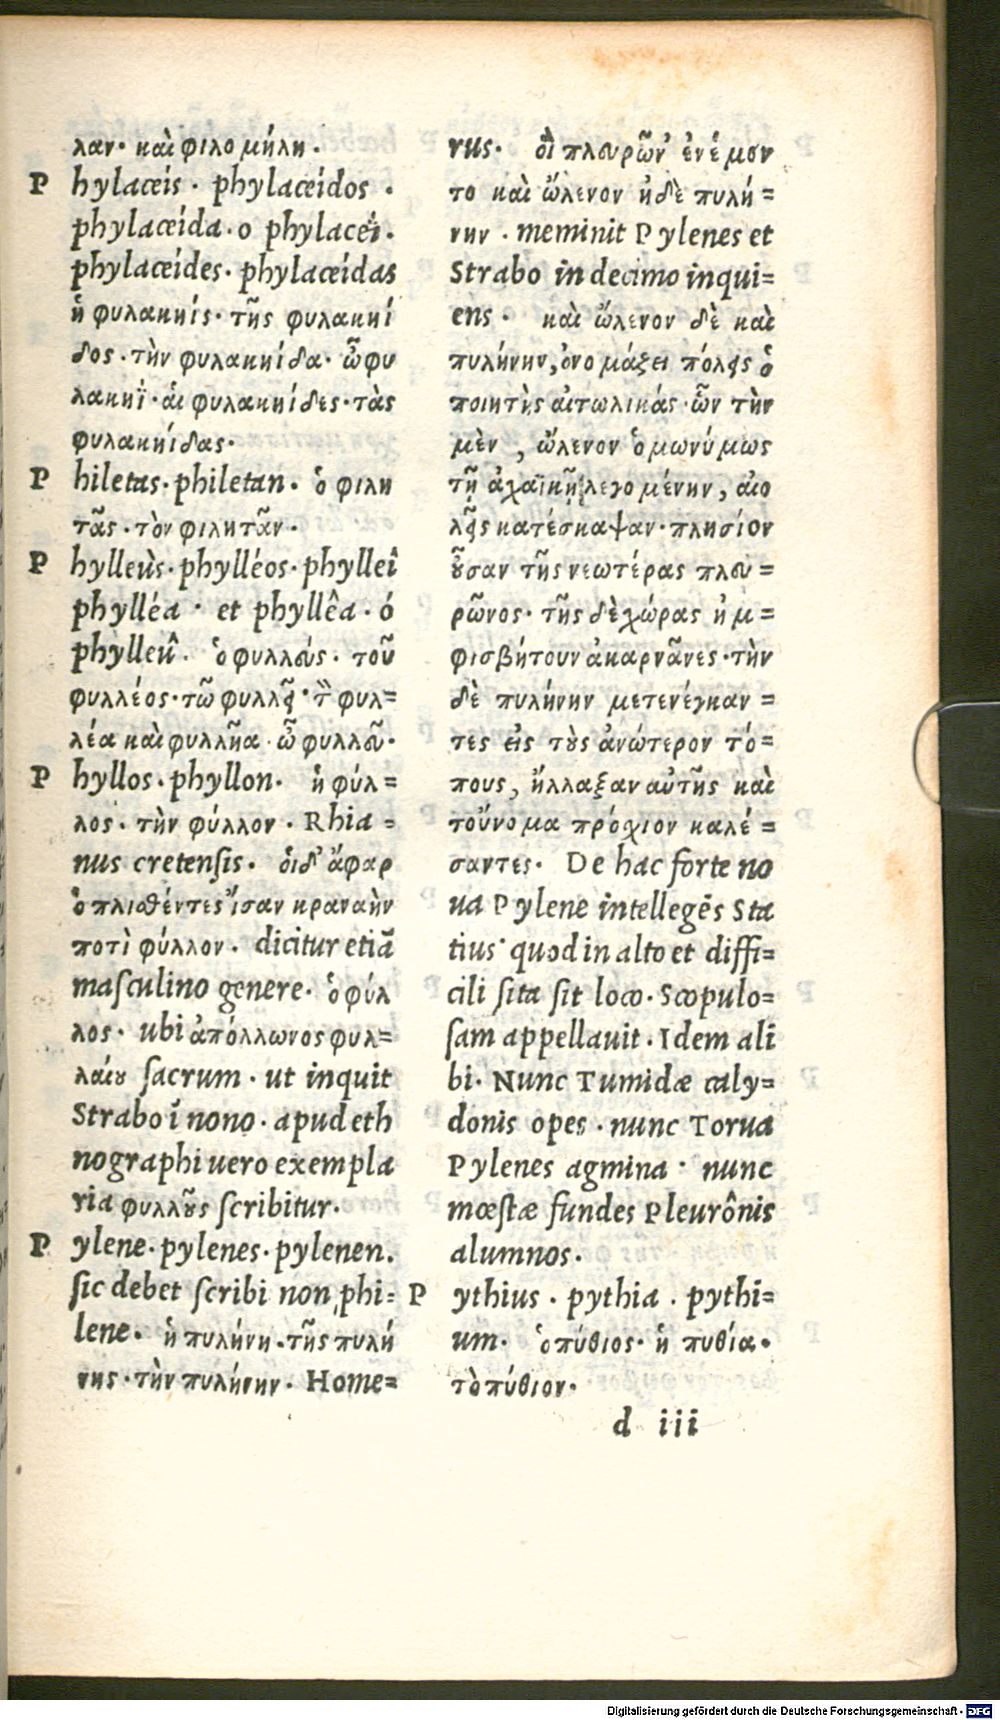 λαν· καὶ φιλομήλη.
Phylaceis · phylaceídos ·
phylaceída · o phylaceï ·
phylaceídes · phylaceídas
ἡ φυλακηίς · τῆς φυλακηί
δος · τὴν φυλακηίδα · ὦ φυ
λακηΐ · αἱ φυλακηίδες · τὰς
φυλακηίδας ·
Philetas · philetan · ὁ φιλη
τᾶς · τὸν φιλητᾶν ·
Phylleùs · phylléos · phylleî
phylléa · et phyllêa · ó
phylleû · ὁ φυλλεύς · τοῦ
φυλλέος · τῶ φυλλεῖ · τὸν φυλ=
λέα καὶ φυλλῆα · ὦ φυλλεῦ ·
Phyllos · phyllon · ἡ φύλ=
λος · τὴν φύλλον · Rhia=
nus cretensis · οἱ δ' ἄφαρ
ὁπλισθέντες ἴσαν κραναὴν
ποτὶ φύλλον · dicitur etiã
masculino genere · ὁ φύλ
λος · ubi ἀπόλλωνος φυλ=
λαίου sacrum · ut inquit
Strabo ĩ nono · apud eth
nographi uero exempla
ria φυλλοῦς scribitur ·
Pylene · pylenes · pylenen.
sic debet scribi non phi=
lene · ἡ πυλήνη · τῆς πυλή
νης · τὴν πυλήνην · Home=
rus · οἳ πλευρῶν' ἐνέμον
το καὶ ὤλενον ἠδὲ πυλή=
νην · meminit Pylenes et
Strabo in decimo inqui=
ens · καὶ ὤλενον δὲ καὶ
πυλήνην, ὀνομάζει πόλεις ὁ
ποιητὴς αἰτωλικάς · ὧν τὴν
μὲν, ὤλενον ὁμωνύμως
τῇ ἀχαϊκῇ λεγομένην, αἰο
λεῖς κατέσκαψαν · πλησίον
οὖσαν τῆς νεωτέρας πλευ=
ρῶνος · τῆς δὲ χώρας ἠμ=
φισβήτουν ἀκαρνᾶνες · τὴν
δὲ πυλήνην μετενέγκαν=
τες εἰς τοὺς ἀνώτερον τό=
πους, ἤλλαξαν αὐτῆς καὶ
τοὔνομα πρόχιον καλέ=
σαντες · De hac forte no
ua Pylene intellegẽs Sta
tius · quod in alto et diffi=
cili sita sit loco · Scopulo=
sam appellauit · Idem ali
bi · Nunc Tumidæ caly=
donis opes · nunc Torua
Pylenes agmina · nunc
mœstæ fundes Pleurônis
alumnos ·
Pythius · pythia · pythi=
um · ὁ πύθιος · ἡ πυθία ·
τὸ πύθιον ·
d iii
Digitalisierung gefördert durch die Deutsche Forschungsgemeinschaft - DFG